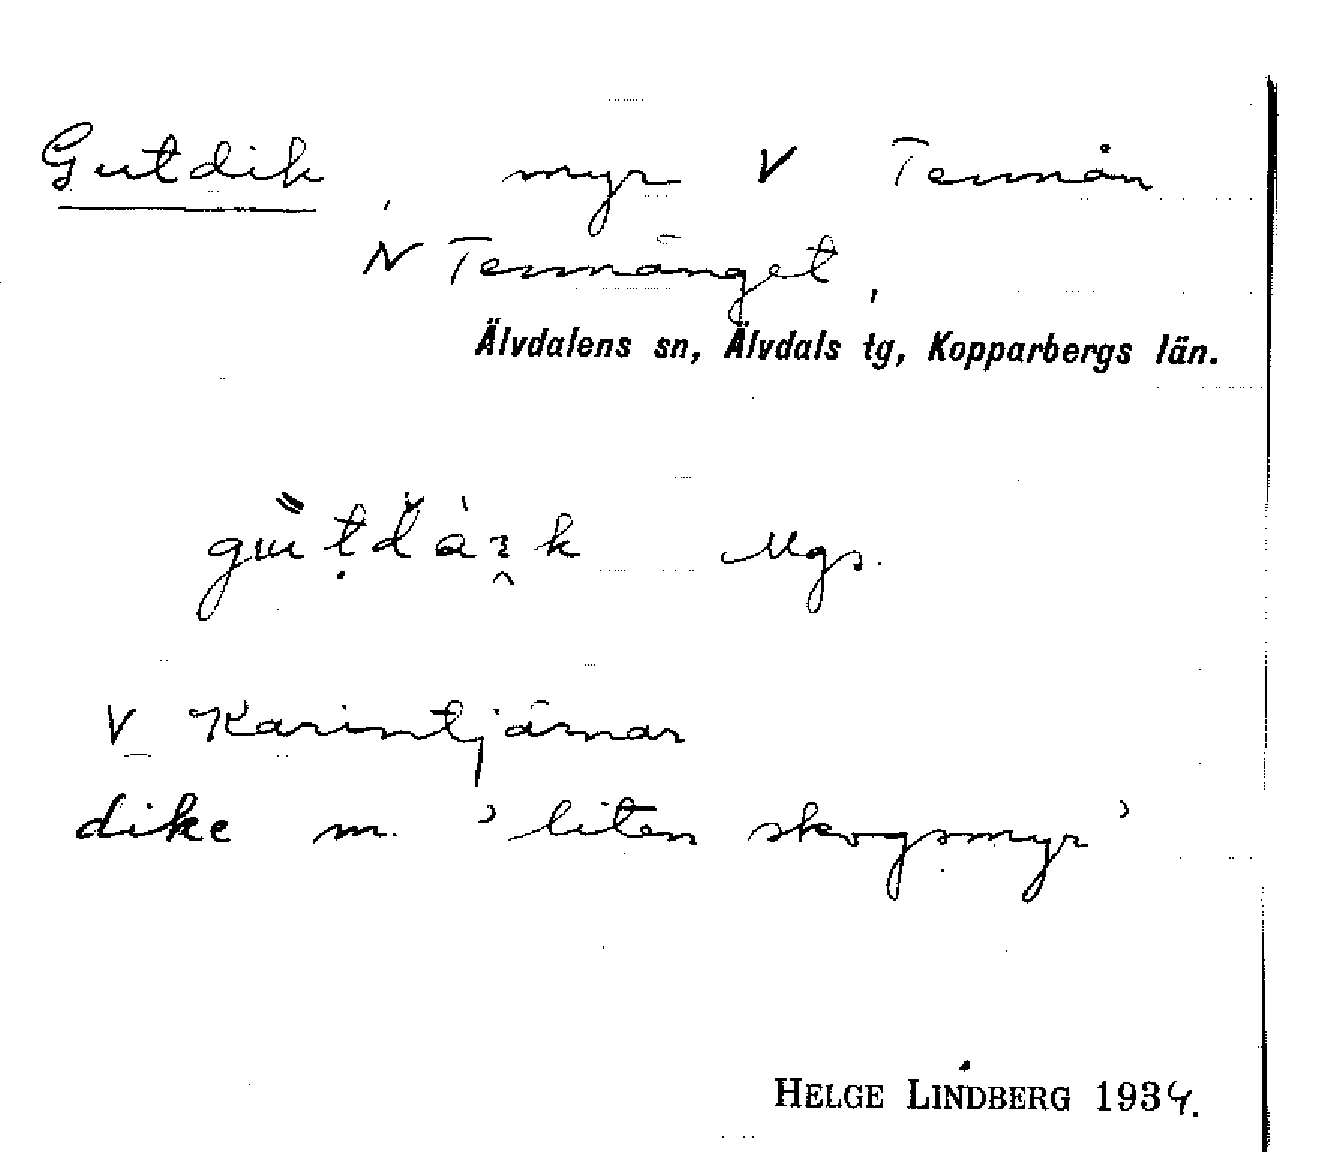 Gutdik, myr V Tennån
N Tennänget,
Älvdalens sn, Älvdals tg, Kopparbergs län.
Mgs.
V Karintjärnar
dike m. 'liten skogsmyr'
HELGE LINDBERG 1934.